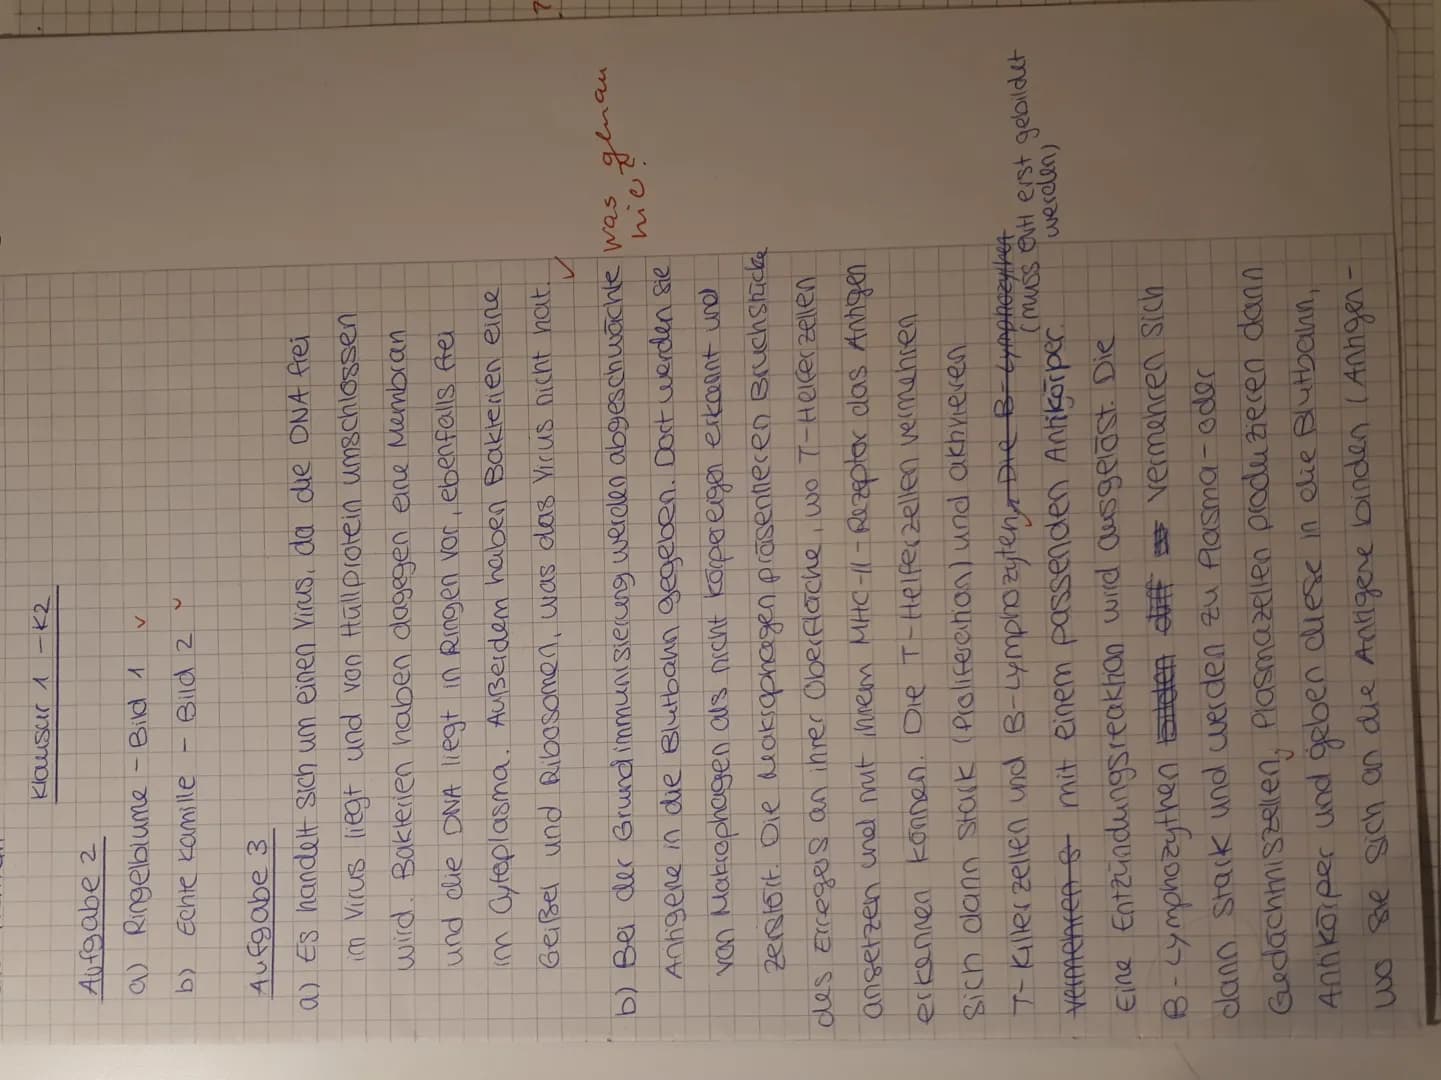 Klausur 1 - K2
Aufgabe 2
a) Ringelblume - Bild 1 ✓
b) Echte Kamille - Bild 2 ✓
Aufgabe 3
a) Es handelt sich um einen Virus, da die DNA frei
im Virus liegt und von Hüllprotein umschlossen
wird. Bakterien haben dagegen eine Membran
und die DNA liegt in Ringen vor, ebenfalls frei
im Cytoplasma. Außerdem haben Bakterien eine
Geißel und Ribosomen, was das Virus nicht hat. ✓
b) Bei der Grundimmunisierung werden abgeschwächte was genau
hier?
Antigene in die Blutbahn gegeben. Dort werden sie
von Makrophagen als nicht körpereigen erkannt und
zerstört. Die Makrophagen präsentieren Bruchstücke
des Erregers an ihrer Oberfläche, wo T-Helferzellen
ansetzen und mit ihrem MHC-II-Rezeptor das Antigen
erkennen können. Die T-Helferzellen vermehren
sich dann stark (Proliferation) und aktivieren
T-Killerzellen und B-Lymphozyten, Die B-Lymphozythen
(muss evtl erst gebildet
werden)
vermehren s mit einem passenden Antikörper.
Eine Entzündungsreaktion wird ausgelöst. Die
B-Lymphozythen bilden diff vermehren sich
dann stark und werden zu Plasma- oder
Gedächtniszellen, Plasmazellen produzieren dann
Antikörper und geben diese in die Blutbahn,
wo sie sich an die Antigene binden (Antigen-